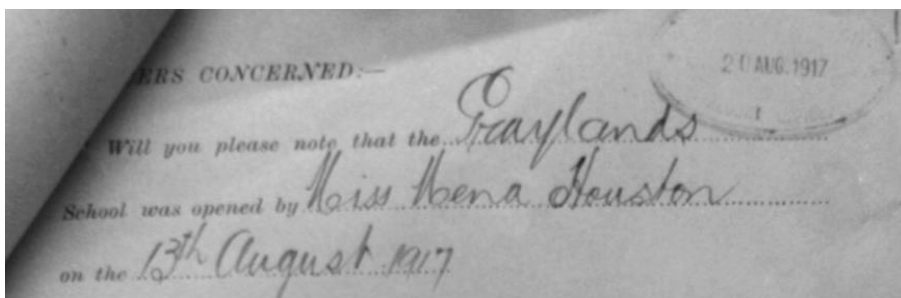 20 AUG. 1917
ERS CONCERNED:—
Will you please note that the Graylands
School was opened by Miss Mena Houston
on the 13th August 1917